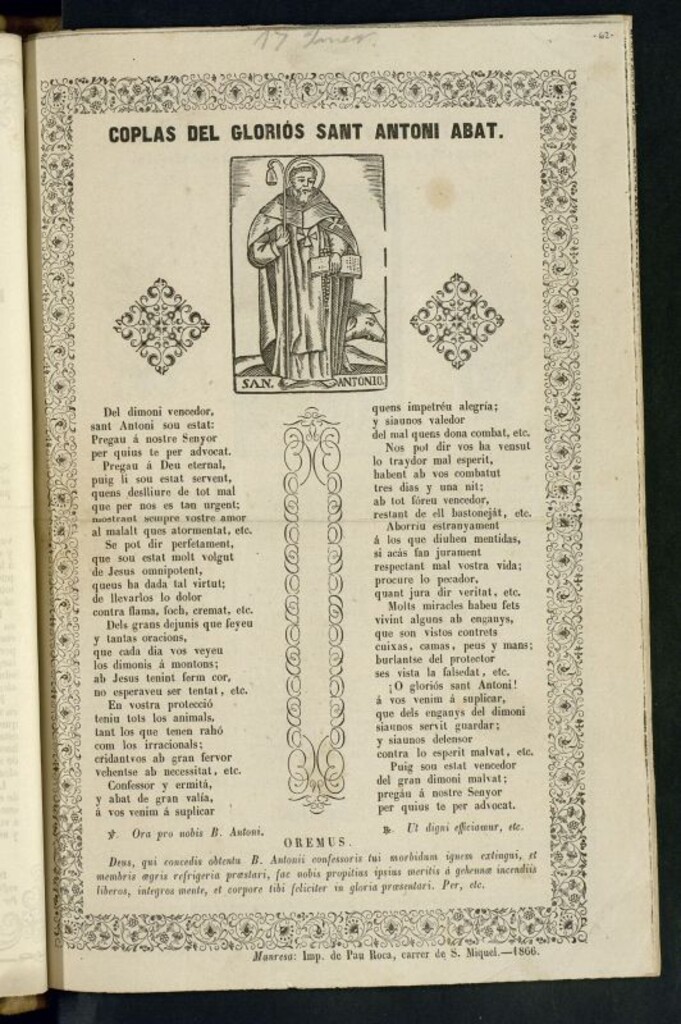 17 Janer.
-62-
COPLAS DEL GLORIÓS SANT ANTONI ABAT.
SAN. ANTONIO.
Del dimoni vencedor,
sant Antoni sou estat:
Pregau á nostre Senyor
per quius te per advocat.
Pregau á Deu eternal,
puig li sou estat servent,
quens deslliure de tot mal
que per nos es tan urgent;
mostrant sempre vostre amor
al malalt ques atormentat, etc.
Se pot dir perfetament,
que sou estat molt volgut
de Jesus omnipotent,
queus ha dada tal virtut;
de llevarlos lo dolor
contra flama, foch, cremat, etc.
Dels grans dejunis que feyeu
y tantas oracions,
que cada dia vos veyeu
los dimonis á montons;
ab Jesus tenint ferm cor,
no esperaveu ser tentat, etc.
En vostra protecció
teniu tots los animals,
tant los que tenen rahó
com los irracionals;
cridantvos ab gran fervor
vehentse ab necesitat, etc.
Confessor y ermitá,
y abat de gran valía,
á vos venim á suplicar
quens impetréu alegría;
y siaunos valedor
del mal quens dona combat, etc.
Nos pot dir vos ha vensut
lo traydor mal esperit,
habent ab vos combatut
tres dias y una nit;
ab tot fóreu vencedor,
restant de ell bastonejat, etc.
Aborriu estranyament
á los que diuhen mentidas,
si acás fan jurament
respectant mal vostra vida;
procure lo pecador,
quant jura dir veritat, etc.
Molts miracles habeu fets
vivint alguns ab enganys,
que son vistos contrets
cuixas, camas, peus y mans;
burlantse del protector
ses vista la falsedat, etc.
¡O gloriós sant Antoni!
á vos venim á suplicar,
que dels enganys del dimoni
siaunos servit guardar;
y siaunos defensor
contra lo esperit malvat, etc.
Puig sou estat vencedor
del gran dimoni malvat;
pregáu á nostre Senyor
per quius te per advocat.
℣. Ora pro nobis B. Antoni.
℟. Ut digni efficiamur, etc.
OREMUS.
Deus, qui concedis obtentu B. Antonii confessoris tui morbidum ignem extingui, et
membris ægris refrigeria præstari, fac nobis propitius ipsius meritis á gehennæ incendiis
liberos, integros mente, et corpore tibi feliciter in gloria præsentari. Per, etc.
Manresa: Imp. de Pau Roca, carrer de S. Miquel.—1866.